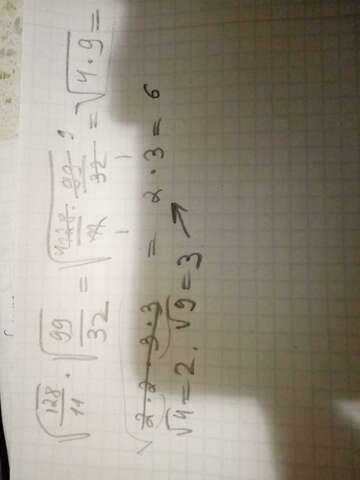 √128/11 · √99/32 = √4128/11 · 99 9/32 = √4·9 =
1 1
√2·2·3·3 = 2·3 = 6
√4=2. √9=3 ↗